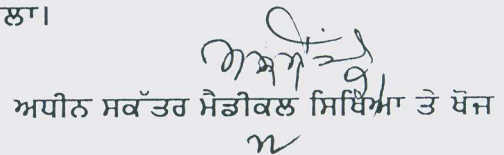 ਲਾ।
ਅਧੀਨ ਸਕੱਤਰ ਮੈਡੀਕਲ ਸਿਖਿਆ ਤੇ ਖੋਜ